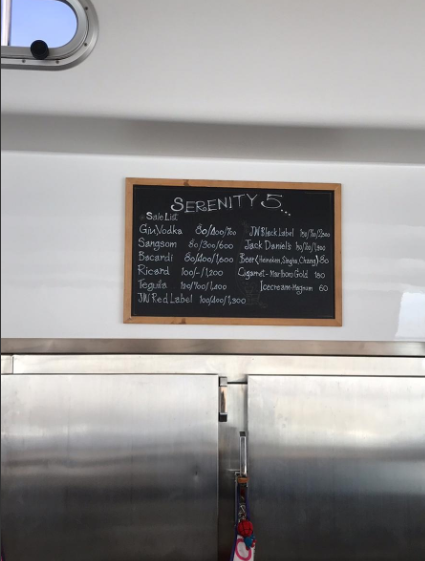 SERENITY 5...
Sale List
Gin, Vodka 80/400/700
Sangsom 80/300/600
Bacardi 80/400/1,000
Ricard 100/-/1,200
Tequila 100/700/1,400
JW Red Label 100/400/1,300
JW Black Label
Jack Daniels
Beer (Heineken, Singha, Chang) 80
Cigaret - Marlboro Gold
Icecream-Magnum 60